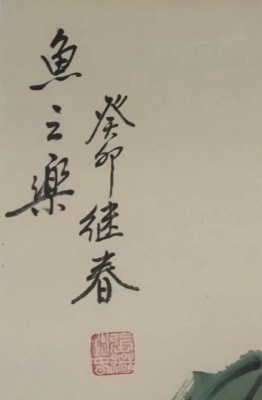 魚之樂
癸卯继春